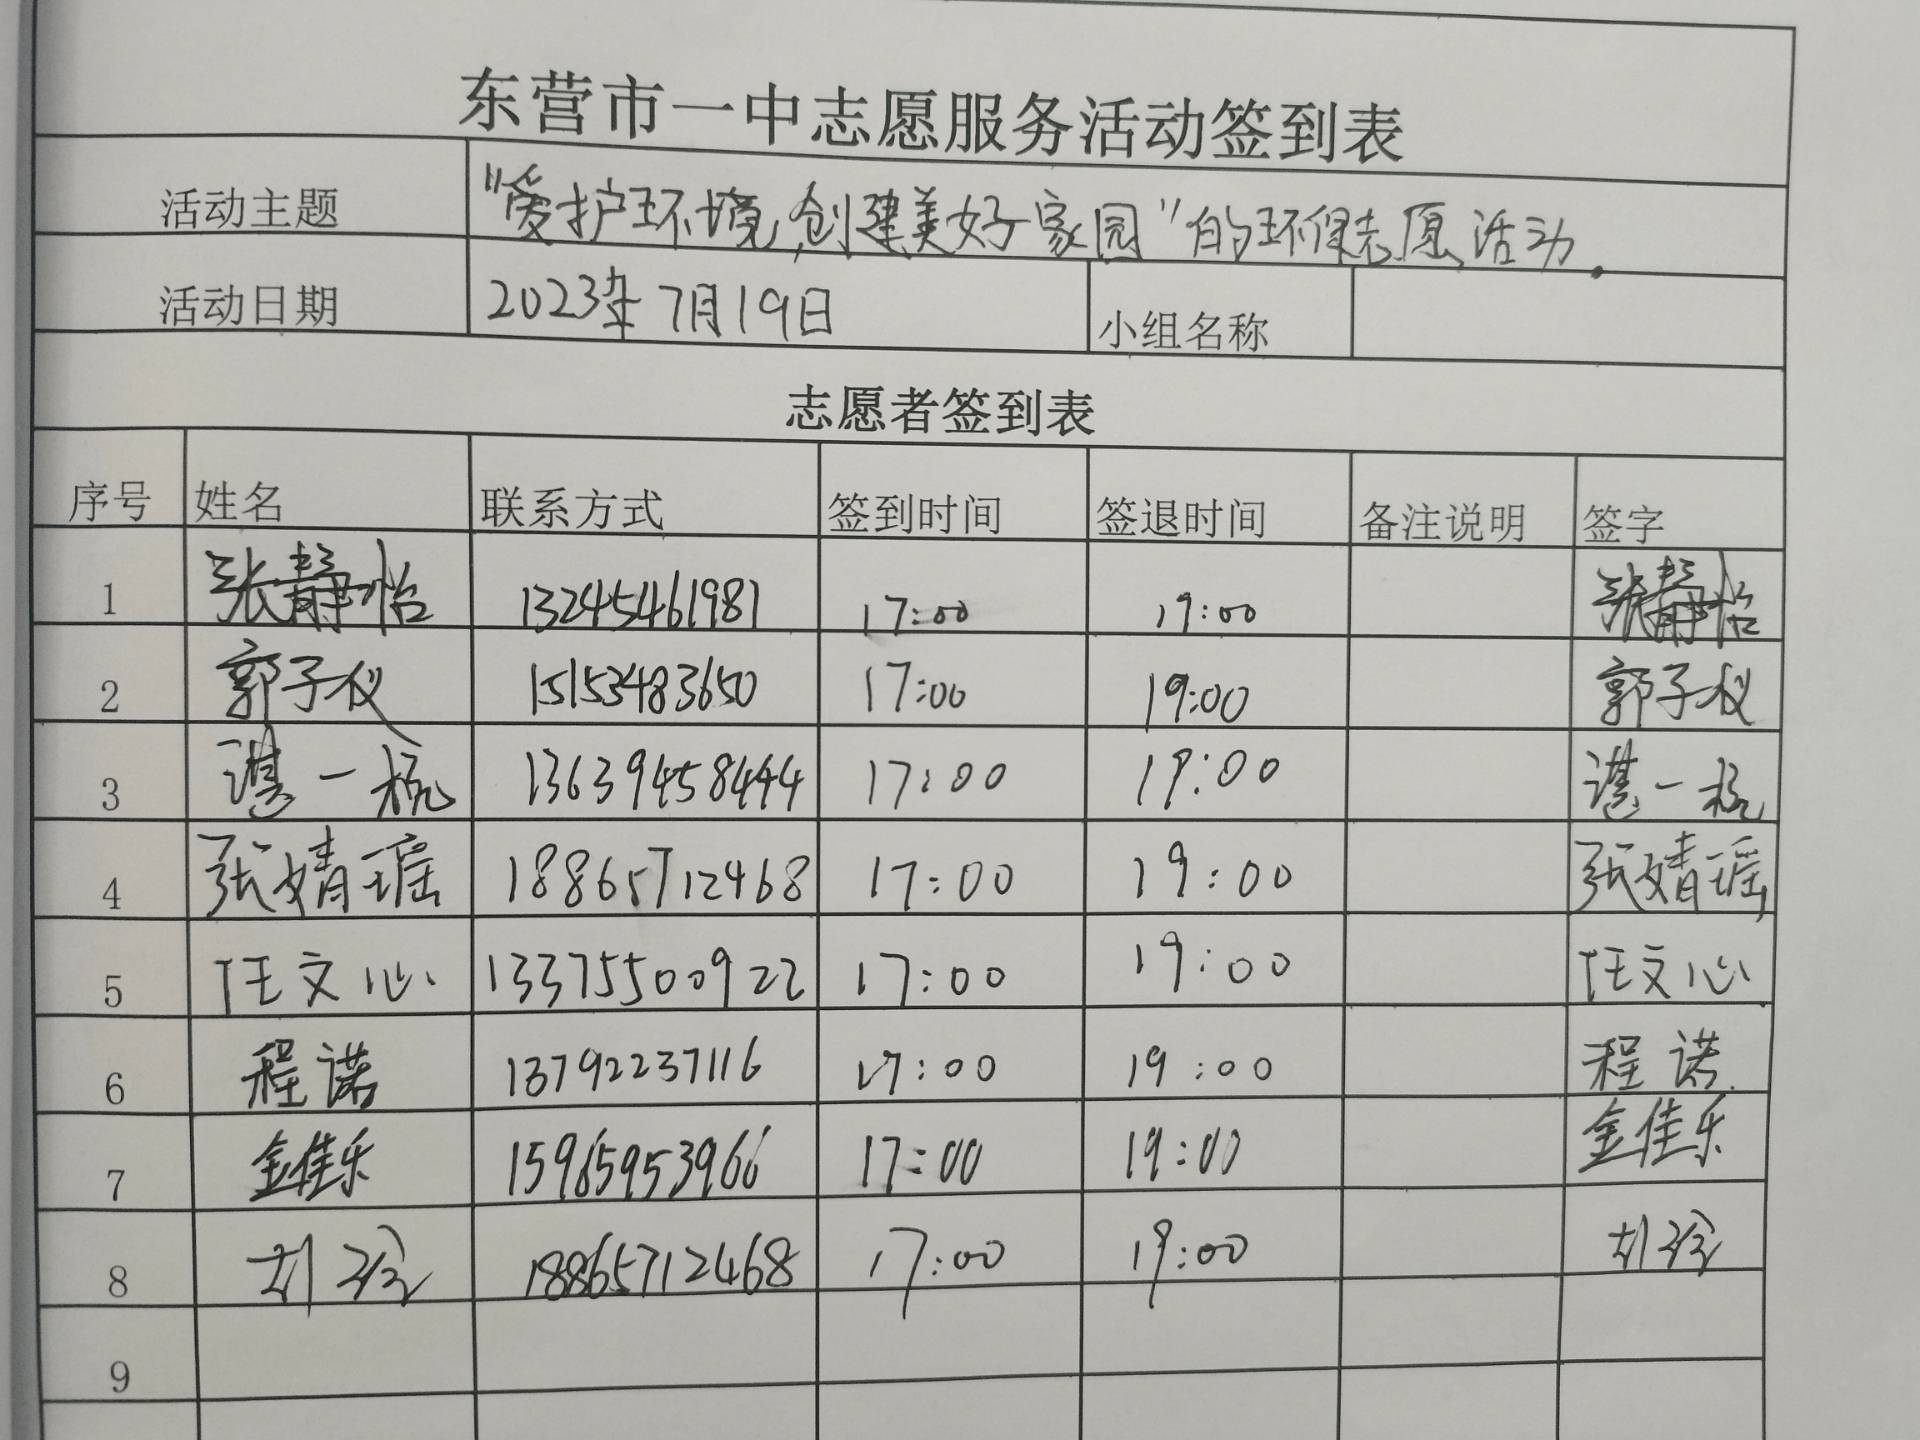 东营市一中志愿服务活动签到表
活动主题 "爱护环境,创建美好家园"的环保志愿活动.
活动日期 2023年7月19日 小组名称
志愿者签到表
序号 姓名 联系方式 签到时间 签退时间 备注说明 签字
1 张静怡 13245461981 17:00 19:00 张静怡
2 郭子仪 15153483650 17:00 19:00 郭子仪
3 谌一杭 13639458444 17:00 19:00 谌一杭
4 张婧瑶 18865712468 17:00 19:00 张婧瑶
5 任文心 13375500922 17:00 19:00 任文心
6 程诺 13792237116 17:00 19:00 程诺
7 金佳乐 15965953966 17:00 19:00 金佳乐
8 18865712468 17:00 19:00
9